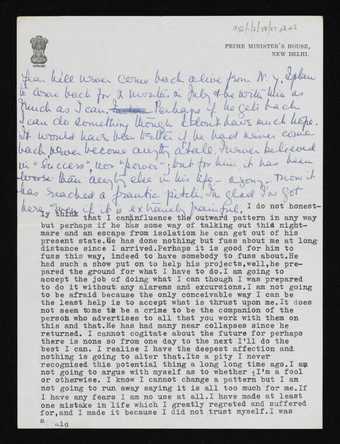 PRIME MINISTER'S HOUSE,
NEW DELHI.
that he will never come back alive from N.Y.
come back for 2 months in July & be with him as
much as I can. Perhaps if he gets back
I can do something though I don't have much hope.
It would have been better if he had never come
back never become anything at all. I never believed
in "success", nor "power", but for him it has been
worse than anything else in his life. Now it
has reached a frantic pitch. I'm glad I've got
here even if it is extremely painful. I do not honest-
ly think that I can influence the outward pattern in any way
but perhaps if he has some way of talking out this night-
mare and an escape from isolation he can get out of his
present state. He has done nothing but fuss about me at long
distance since I arrived. Perhaps it is good for him to
fuss this way, indeed to have somebody to fuss about. He
had such a show put on to help his projects, well, he pre-
pared the ground for what I have to do. I am going to
accept the job of doing what I can though I was prepared
to do it without any alarms and excursions. I am not going
to be afraid because the only conceivable way I can be
the least help is to accept what is thrust upon me. It does
not seem to me to be a crime to be the companion of the
person who advertises to all that you work with them on
this and that. He has had many near collapses since he
returned. I cannot cogitate about the future for perhaps
there is none so from one day to the next I'll do the
best I can. I realise I have the deepest affection and
nothing is going to alter that. Its a pity I never
recognised this potential thing a long long time ago. I am
not going to argue with myself as to whether I'm a fool
or otherwise. I know I cannot change a pattern but I am
not going to run away saying it is all too much for me. If
I have any fears I am no use at all. I have made at least
one mistake in life which I greatly regreted and suffered
for, and I made it because I did not trust myself. I was